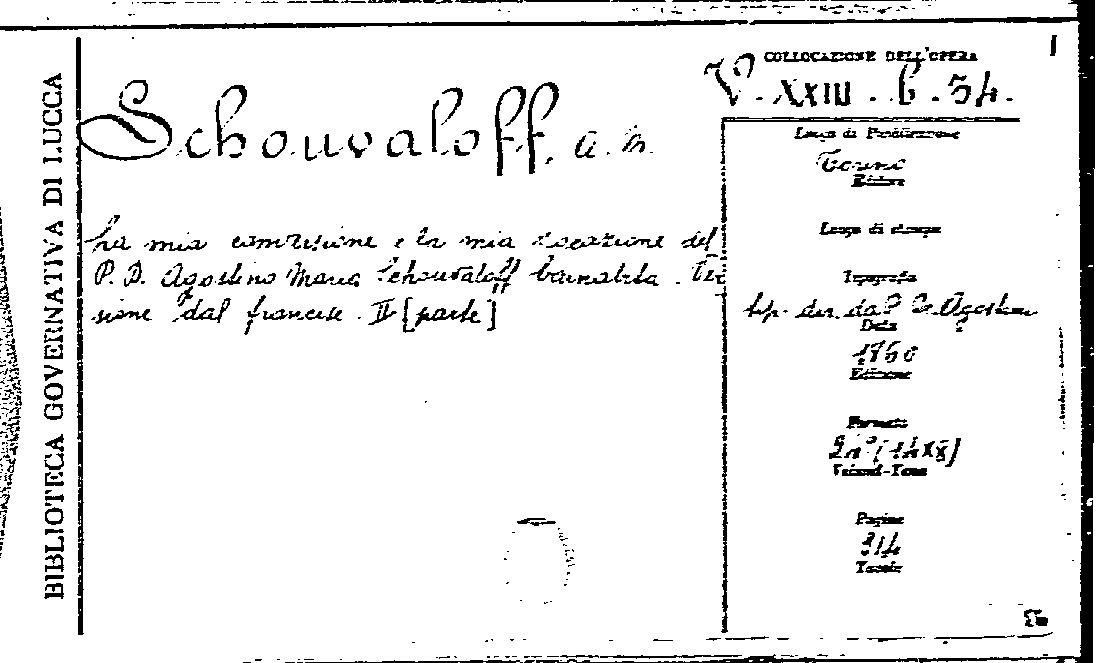 BIBLIOTECA GOVERNATIVA DI LUCCA
Schouvaloff, a. m.
La mia conversione e la mia vocazione del
P. D. Agostino Maria Schouvaloff barnabita. Ver
sione dal francese. II [parte]
1
COLLOCAZIONE DELL'OPERA
V. XXIII. b. 54.
Luogo di Pubblicazione
Torino
Editore
Luogo di stampa
Tipografia
tip. dir. da P. De Agostini
Data
1860
Edizione
Formato
(14XX)
Volumi-Tomi
Pagine
314
Tavole